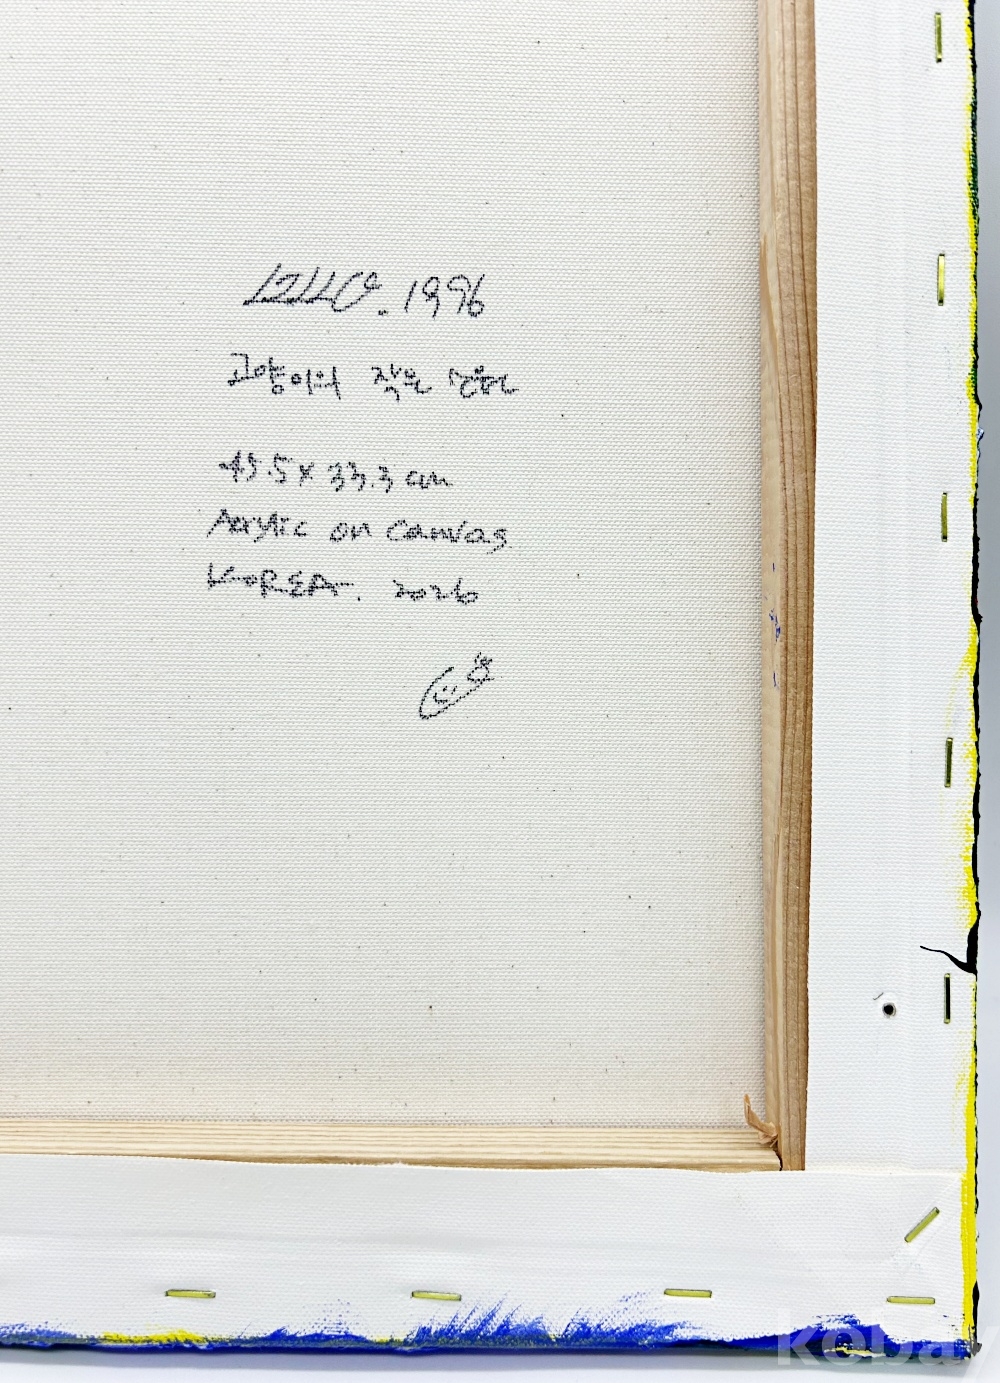 . 1996
고양이의 작은
45.5 x 33.3 cm
Acrylic on canvas
KOREA. 2026
kebay